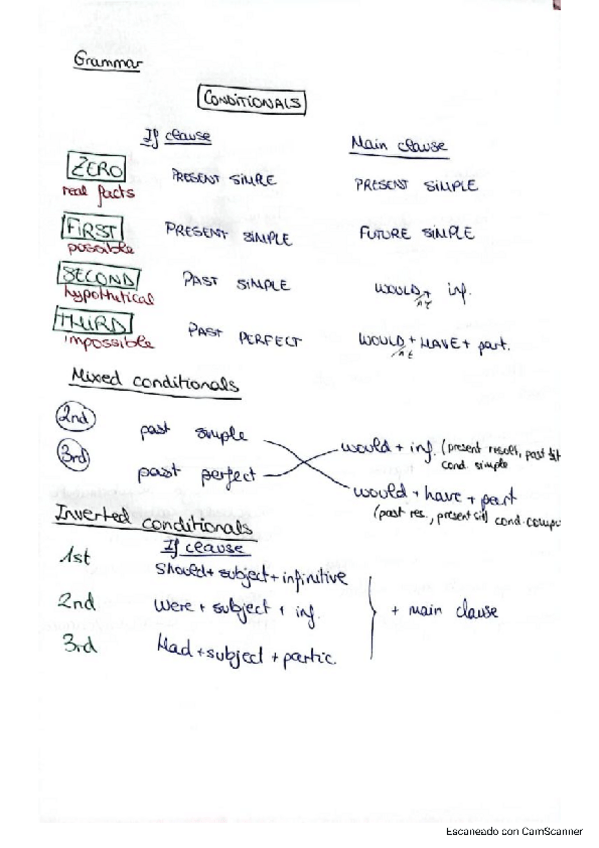 Grammar
CONDITIONALS
If clause Main clause
ZERO PRESENT SIMPLE PRESENT SIMPLE
real facts
FIRST PRESENT SIMPLE FUTURE SIMPLE
possible
SECOND PAST SIMPLE WOULD + inf.
hypothetical
THIRD PAST PERFECT WOULD + HAVE + part.
impossible
Mixed conditionals
2nd past simple would + inf. (present result, past sit
cond. simple
3rd past perfect would + have + part
(past res., present sit) cond. compu
Inverted conditionals
If clause
1st Should + subject + infinitive
2nd Were + subject + inf. + main clause
3rd Had + subject + partic.
Escaneado con CamScanner